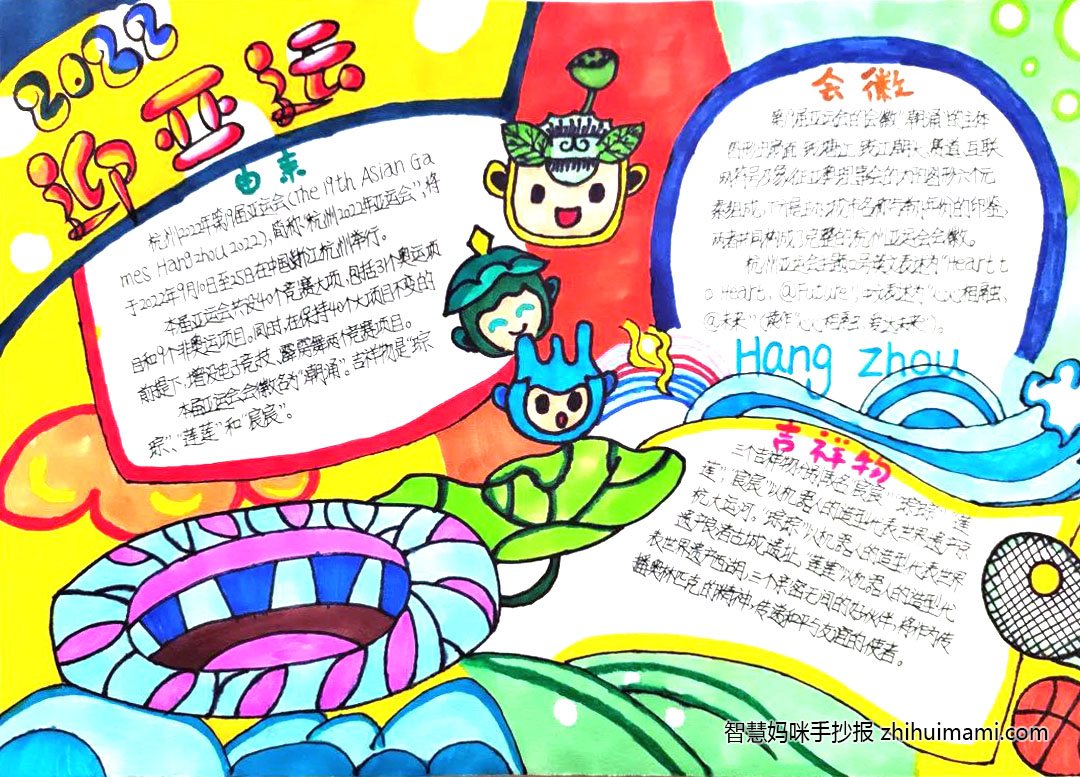 2022
迎亚运
由来
杭州2022年第19届亚运会(The 19th Asian Ga
mes Hangzhou 2022),简称"杭州2022年亚运会",将
于2022年9月10日至25日在中国浙江杭州举行。
本届亚运会共设40个竞赛大项,包括31个奥运项
目和9个非奥运项目。同时,在保持40个大项目不变的
前提下,增设电子竞技、霹雳舞两个竞赛项目。
本届亚运会会徽名为"潮涌"。吉祥物是"琮
琮"、"莲莲"和"宸宸"。
会徽
第19届亚运会的会徽"潮涌"的主体
图形由扇面、钱塘江、钱江潮头、赛道、互联
网符号及象征亚奥理事会的太阳图形六个元
素组成,下方是主办城市名称与举办年份的印鉴,
两者共同构成了完整的杭州亚运会会徽。
杭州亚运会主题口号英文表述为"Heart t
o Heart, @Future",中文表述为"心心相融,
@未来"(读作"心心相融,爱达未来")。
Hang zhou
吉祥物
三个吉祥物分别取名"宸宸""琮琮""莲
莲","宸宸"以机器人的造型代表世界遗产京
杭大运河。"琮琮"以机器人的造型代表世界
遗产良渚古城遗址,"莲莲"以机器人的造型代
表世界遗产西湖,三个亲密无间的好伙伴,将作为传
播奥林匹克的精神,传递和平与友谊的使者。
智慧妈咪手抄报 zhihuimami.com